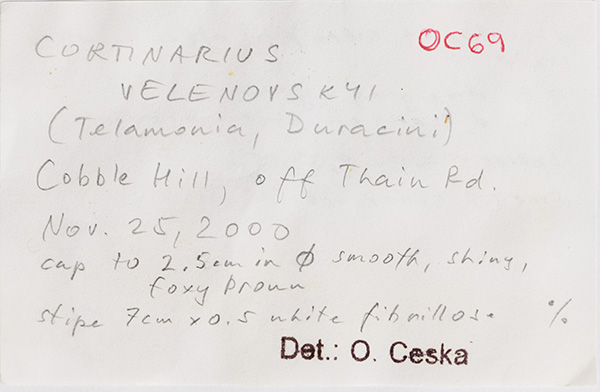 OC69
CORTINARIUS
VELENOVSKYI.
(Telamonia, Duracini)
Cobble Hill, off Thain Rd.
Nov. 25, 2000
cap to 2.5cm in ϕ smooth, shiny,
foxy brown
stipe 7cm x 0.5 white fibrillose %
Det.: O. Ceska